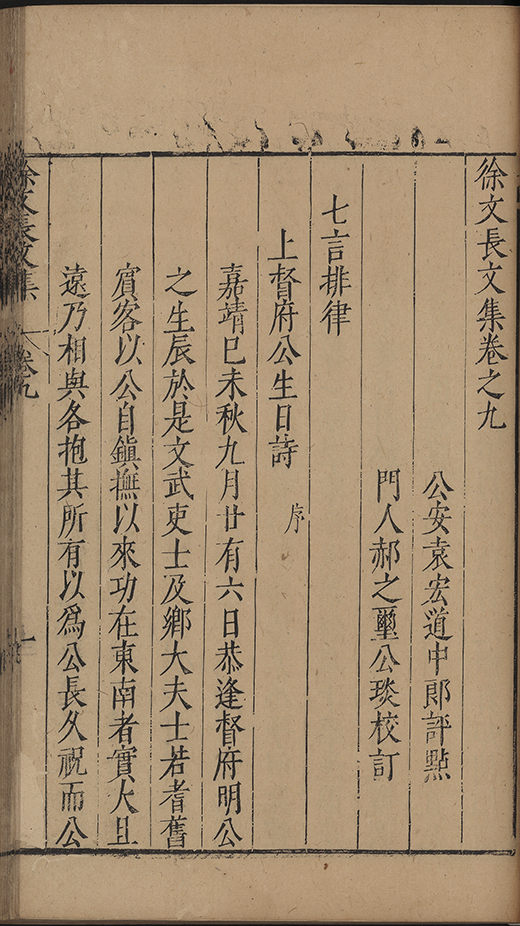 徐文長文集卷之九
公安袁宏道中郎評點
門人郝之璽公琰校訂
七言排律
上督府公生日詩 序
嘉靖己未秋九月廿有六日恭逢督府明公
之生辰於是文武吏士及鄉大夫士若耆舊
賓客以公自鎮撫以來功在東南者實大且
遠乃相與各抱其所有以爲公長久祝而公
徐文長文集 卷九 一